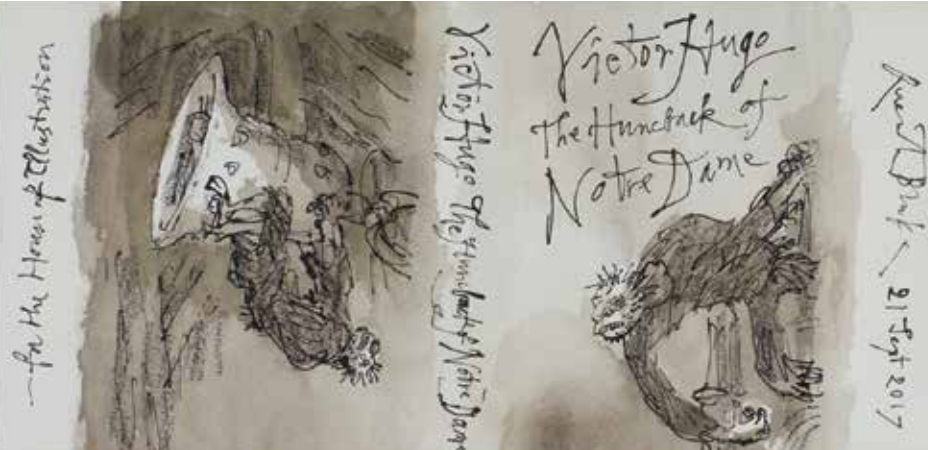 — for the House of Illustration
Victor Hugo The Hunchback of Notre Dame
Victor Hugo
The Hunchback of
Notre Dame
Quentin Blake 21 Sept 2017